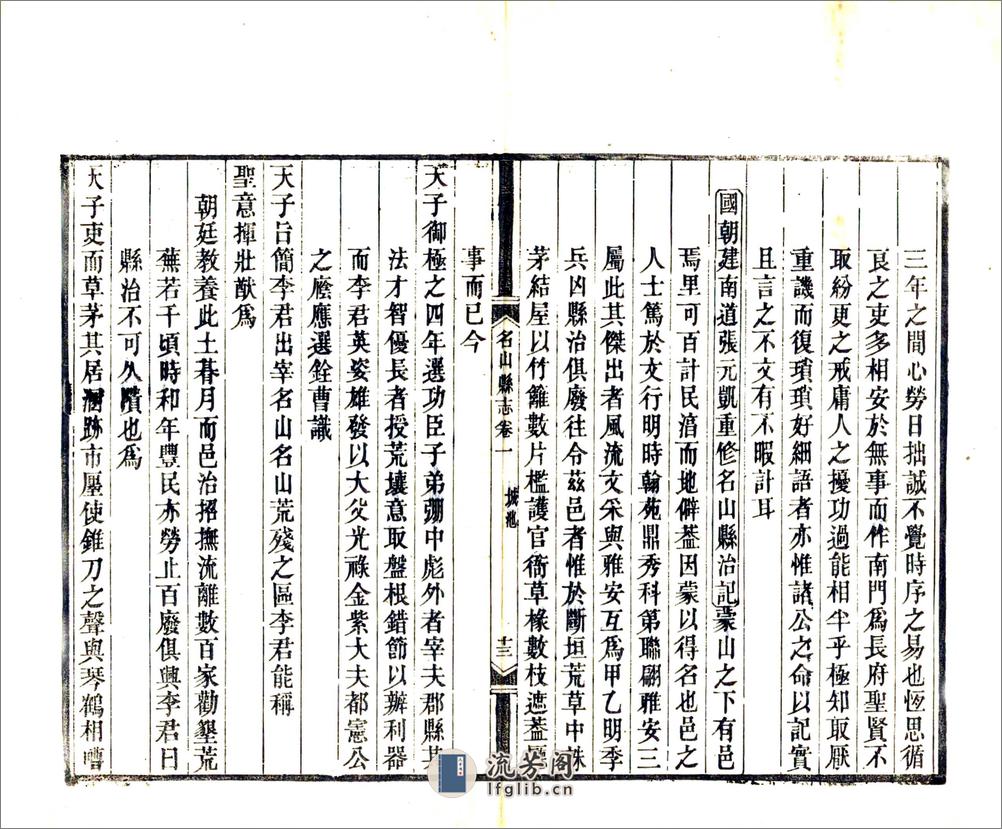 三年之間心勞日拙誠不覺時序之易也恆思循
良之吏多相安於無事而作南門爲長府聖賢不
取紛更之戒庸人之擾功過能相半乎極知取厭
重譏而復瑣瑣好細語者亦惟諸公之命以記實
且言之不文有不暇計耳
國朝建南道張元凱重修名山縣治記蒙山之下有邑
焉里可百計民淯而地僻葢因蒙以得名也邑之
人士篤於文行明時翰苑鼎秀科第聯翩雅安三
屬此其傑出者風流文采與雅安互爲甲乙明季
兵凶縣治俱廢往令茲邑者惟於斷垣荒草中誅
茅結屋以竹籬數片檻護官衙草椽數枝遮葢
名山縣志卷一
城池
十三
事而已今
天子御極之四年選功臣子弟弸中彪外者宰夫郡縣其
法才智優長者授荒壤意取盤根錯節以辦利器
而李君英姿雄發以大父光祿金紫大夫都憲公
之廕應選銓曹識
天子旨簡李君出宰名山名山荒殘之區李君能稱
聖意揮壯猷爲
朝廷教養此土朞月而邑治招撫流離數百家勸墾荒
蕪若千頃時和年豐民亦勞止百廢俱興李君曰
縣治不可久隳也爲
天子吏而草茅其居溷跡市廛使錐刀之聲與琴鶴相嘈
流芳阁
lfglib.cn